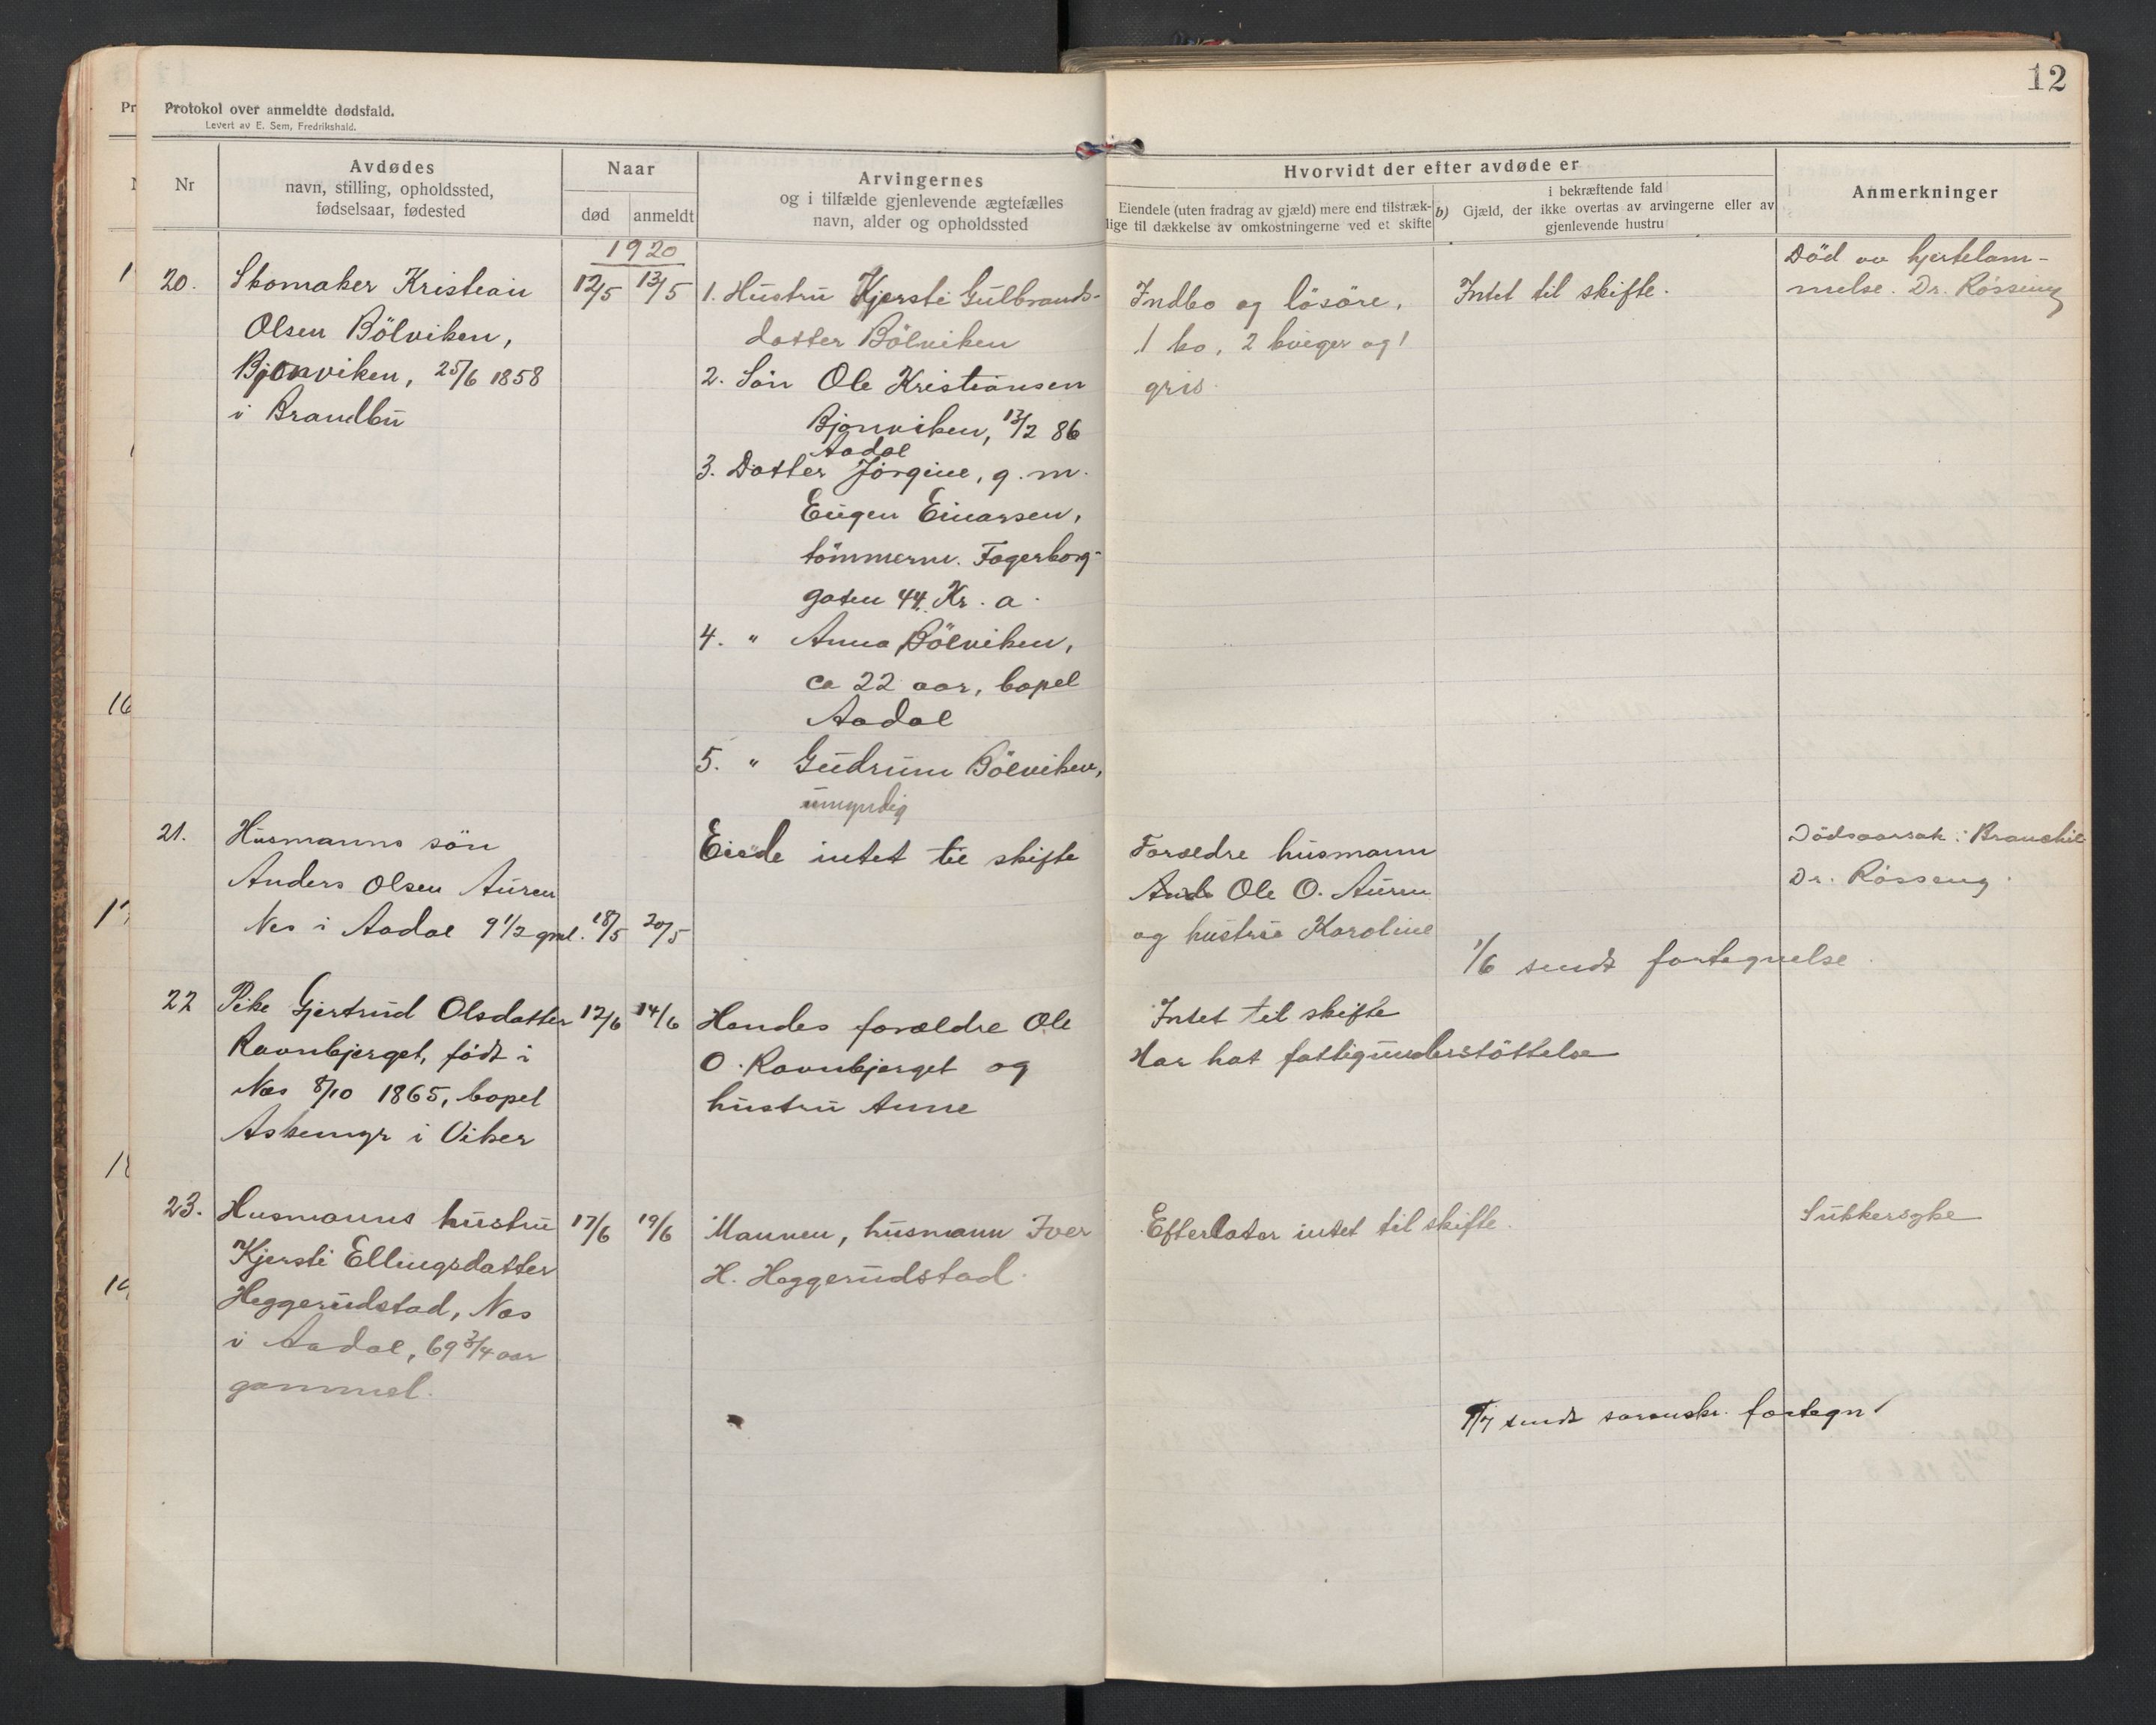 12
Protokol over anmeldte dødsfald.
Levert av E. Sem, Fredrikshald.
Nr
Avdødes
navn, stilling, opholdssted,
fødselsaar, fødested
Naar
død
anmeldt
Arvingernes
og i tilfælde gjenlevende ægtefælles
navn, alder og opholdssted
Hvorvidt der efter avdøde er
Eiendele (uten fradrag av gjæld) mere end tilstræk-
lige til dækkelse av omkostningerne ved et skifte
b)
i bekræftende fald
Gjæld, der ikke overtas av arvingerne eller av
gjenlevende hustru
Anmerkninger
1920
20.
Skomaker Kristian
Olsen Bölviken,
Bjonviken, 25/6 1858
i Brandbu
12/5
13/5
1. Hustru Kjersti Gulbrands-
datter Bölviken
2. Sön Ole Kristiansen
Bjonviken, 13/2 86
Aadal
3. Datter Jörgine, g. m.
Eugen Einarsen,
tömmerm. Fagerborg-
gaten 44. Kr. a.
4. " Anna Bölviken,
ca 22 aar, bopel
Aadal
5. " Gudrun Bölviken,
umyndig
Indbo og lösöre,
1 ko, 2 kviger og 1
gris.
Intet til skifte.
Död av hjertelam-
melse. Dr. Rösseng
21.
Husmanns sön
Anders Olsen Auren
Nes i Aadal 9 1/2 gml.
18/5
20/5
Eiede intet til skifte
Forældre husmann
Ande Ole O. Auren
og hustru Karoline
Dödsaarsak: Bronchit
Dr. Rösseng.
1/6 sendt fortegnelse
22
Pike Gjertrud Olsdatter
Ravnbjerget, födt i
Nes 8/10 1865, bopel
Askemyr i Viker
12/6
14/6
Hendes forældre Ole
O. Ravnbjerget og
hustru Anne
Intet til skifte
Har hat fattigunderstöttelse
23.
Husmanns hustru
Kjersti Ellingsdatter
Heggerudstad, Nes
i Aadal, 69 3/4 aar
gammel.
17/6
19/6
Mannen, husmann Iver
H. Heggerudstad.
Efterlater intet til skifte.
Sukkersyke
1/7 sendt fortegn